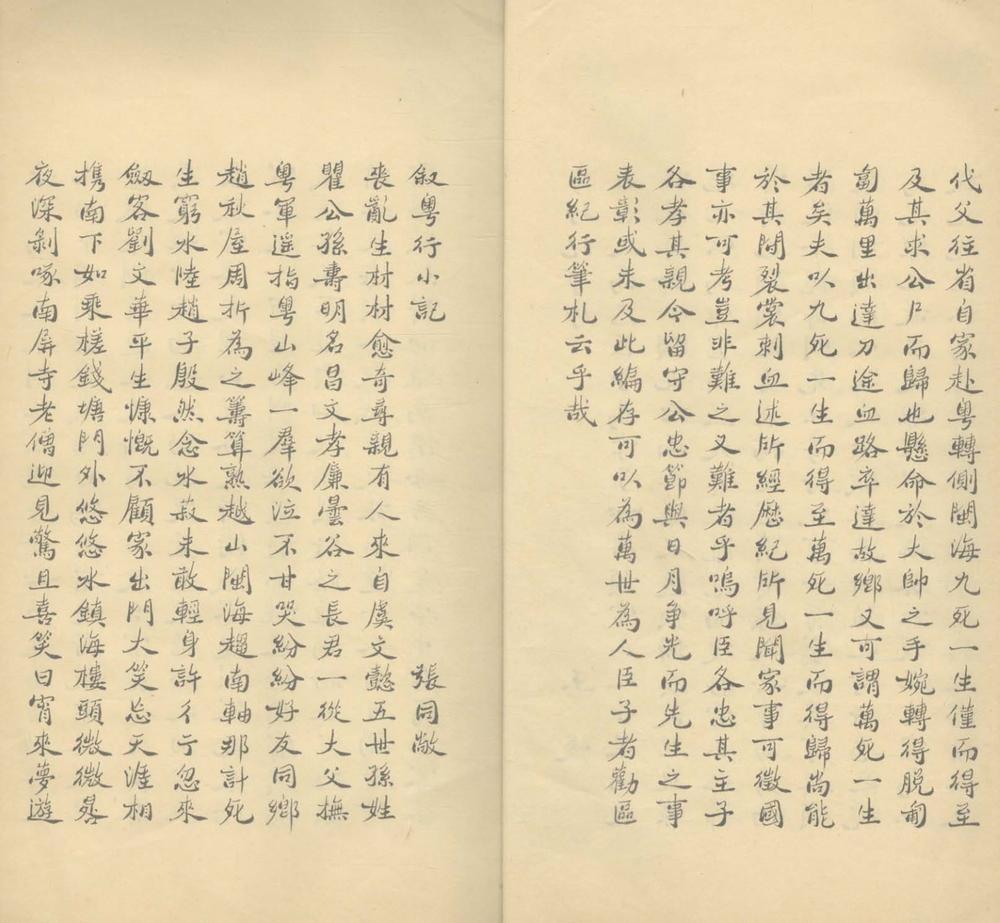 代父往省自家赴粵轉側閩海九死一生僅而得至
及其求公尸而歸也懸命於大帥之手婉轉得脱匍
匐萬里出達刀途血路卒達故鄉又可謂萬死一生
者矣夫以九死一生而得至萬死一生而得歸尚能
於其閒裂裳刺血述所經歷紀所見聞家事可徵國
事亦可考豈非難之又難者乎嗚呼臣各忠其主子
各孝其親今留守公忠節與日月争光而先生之事
表彰或未及此編存可以為萬世為人臣子者勸區
區紀行筆札云乎哉
叙粵行小記 張同敞
喪亂生材材愈奇尋親有人來自虞文懿五世孫姓
瞿公孫壽明名昌文孝廉曇谷之長君一從大父撫
粵軍遥指粵山峰一羣欲泣不甘哭紛紛好友同鄉
趙秋屋周折為之籌算熟越山閩海趨南軸那計死
生窮水陸趙子殷然念水菽未敢輕身許彳亍忽來
劔客劉文華平生慷慨不顧家出門大笑忘天涯相
携南下如乘槎錢塘門外悠悠水鎮海樓頭微微晷
夜深剝啄南屏寺老僧迎見驚且喜笑曰宵來夢遊